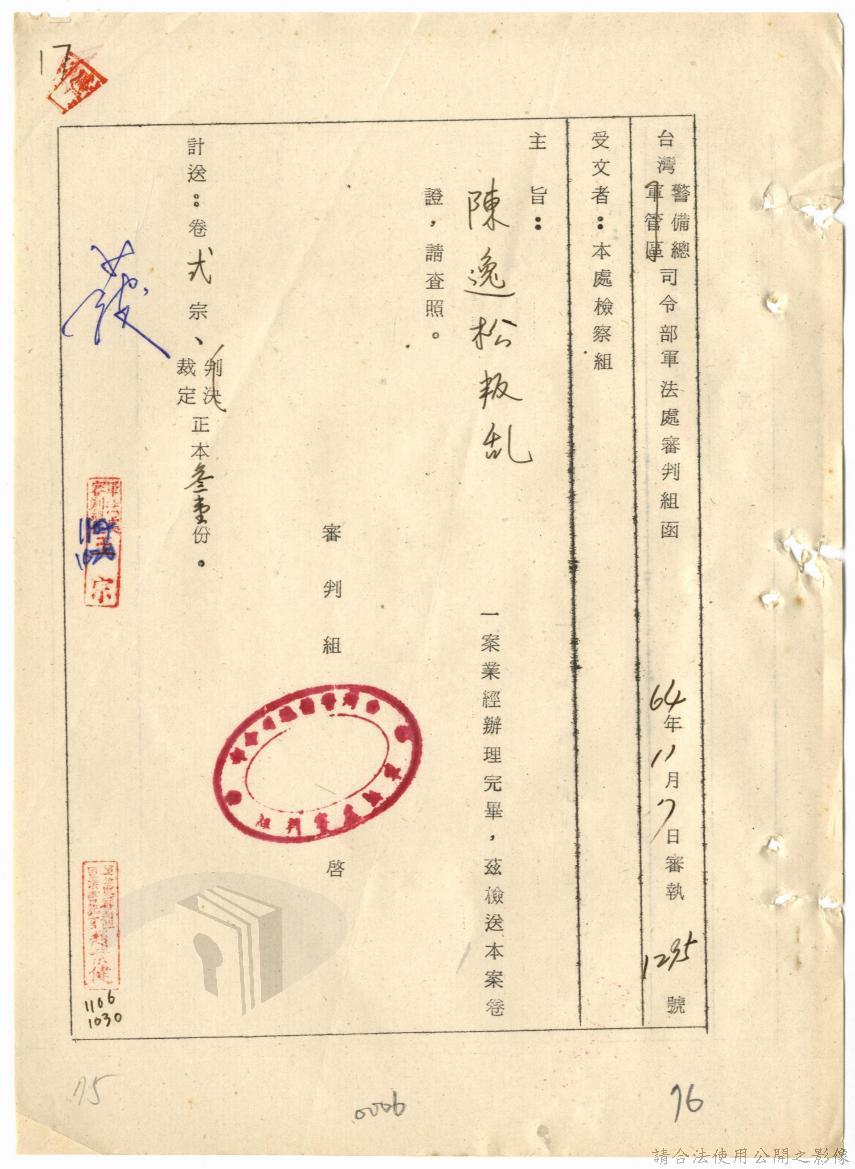 17
台灣警備總軍管區司令部軍法處審判組函
64年11月7日審執1295號
受文者：本處檢察組
主旨：陳逸松叛乱一案業經辦理完畢，茲檢送本案卷
證，請查照。
審判組 啓
計送：卷弍宗、判決裁定正本叁壹份。
1106
1030
75
0006
76
請合法使用公開之影像